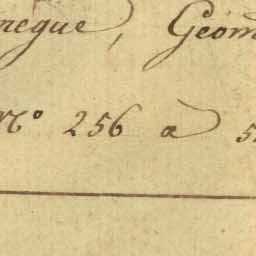 negue, Géom
N° 256 a 5